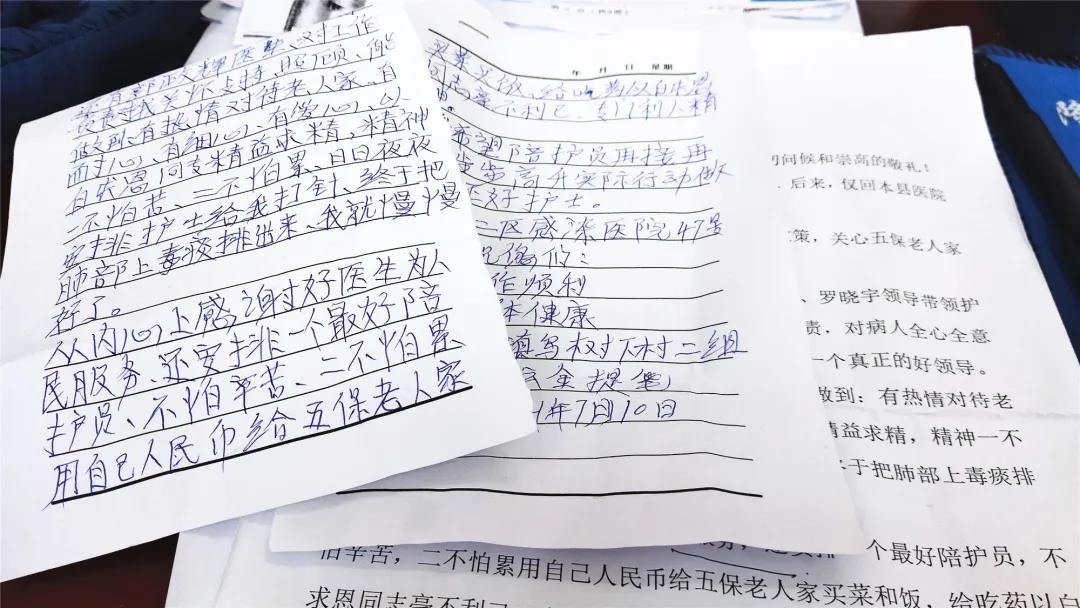 对工作
负责我关怀支持、照顾、能
做到有热情对待老人家、有
耐心、有细心、有爱心、以
白求恩同志精益求精、精神
一不怕苦、二不怕累、日日夜夜
安排护士给我打针、终于把
肺部上毒痰排出来、我就慢慢
好了。
从内心上感谢好医生为人
民服务、还安排一个最好陪
护员、不怕辛苦、二不怕累
用自己人民币给五保老人家
年 月 日 星期
买菜买饭、给吃药以白求恩
同志毫不利己、专门利人精
希望陪护员再接再
步步高升实际行动做
好护士。
区感染医院47号
作顺利
体健康
树下村二组
金提笔
年7月10日
问候和崇高的敬礼！
后来，仅回本县医院
策，关心五保老人家
、罗晓宇领导带领护
责，对病人全心全意
一个真正的好领导。
做到：有热情对待老
精益求精，精神一不
终于把肺部上毒痰排
个最好陪护员，不
怕辛苦，二不怕累用自己人民币给五保老人家买菜和饭，给吃药以白
求恩同志毫不利己